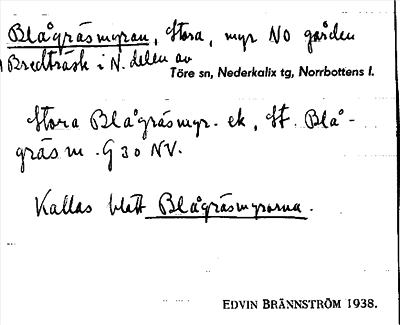 Blågräsmyran, Stora, myr NO gården
Bredträsk i N. delen av
Töre sn, Nederkalix tg, Norrbottens l.
Stora Blågräsmyr. ek, St. Blå-
gräsm. G 30 NV.
Kallas blott Blågräsmyrarna.
EDVIN BRÄNNSTRÖM 1938.